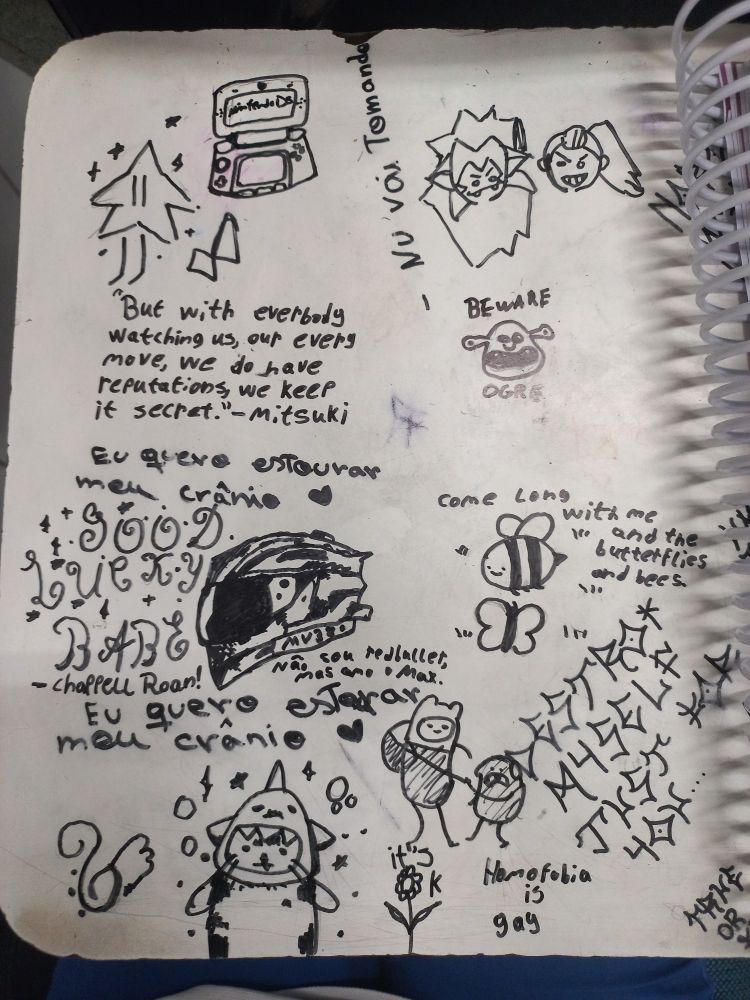 Nintendo DS
NU VAi Tomando
"But with everbody
watching us, our every
move, we do have
reputations, we keep
it secret."-Mitsuki
BEWARE
OGRE
Eu quero estourar
meu crânio
GOOD
LUCKY
BABE
-Chappell Roan!
come Long
with me
and the
butterflies
and bees.
não sou redbuller,
mas amo o Max.
Eu quero estorar
meu crânio
it's
OK
Homofobia
is
gay
OR